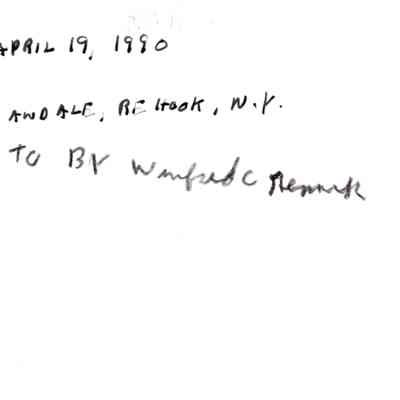 APRIL 19, 1990
ANDALE, RE HOOK, N.Y.
TO BY Winfred C